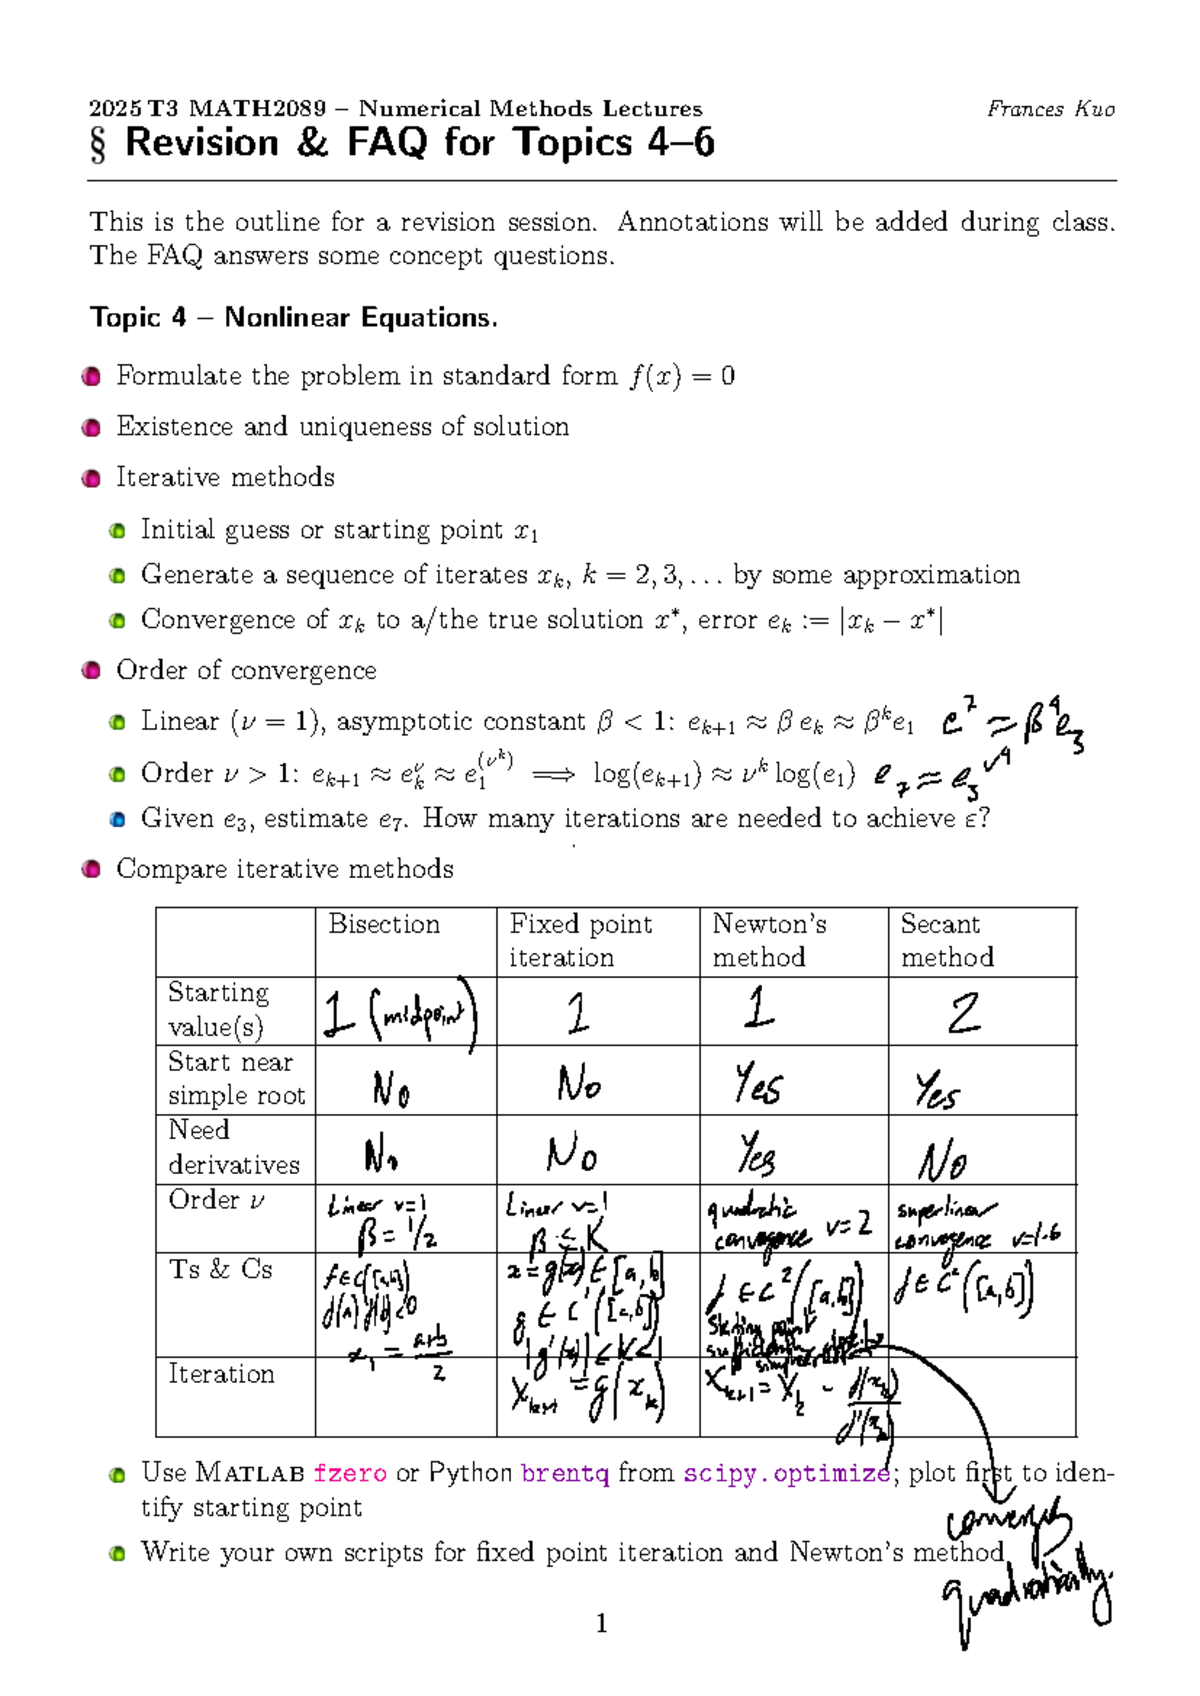 2025 T3 MATH2089 – Numerical Methods Lectures Frances Kuo
§ Revision & FAQ for Topics 4–6
This is the outline for a revision session. Annotations will be added during class.
The FAQ answers some concept questions.
Topic 4 – Nonlinear Equations.
Formulate the problem in standard form f(x) = 0
Existence and uniqueness of solution
Iterative methods
Initial guess or starting point x₁
Generate a sequence of iterates xₖ, k = 2, 3, . . . by some approximation
Convergence of xₖ to a/the true solution x*, error eₖ := |xₖ − x*|
Order of convergence
Linear (ν = 1), asymptotic constant β < 1: eₖ₊₁ ≈ β eₖ ≈ βᵏe₁ e⁷ ≈ β⁴e₃
Order ν > 1: eₖ₊₁ ≈ eₖ^ν ≈ e₁^(ν^k) ⟹ log(eₖ₊₁) ≈ νᵏ log(e₁) e₇ ≈ e₃^ν⁴
Given e₃, estimate e₇. How many iterations are needed to achieve ε?
Compare iterative methods
Bisection Fixed point iteration Newton's method Secant method
Starting value(s) 1 (midpoint) 1 1 2
Start near simple root No No Yes Yes
Need derivatives No No Yes No
Order ν Linear v=1 β = 1/2 Linear v=1 β ≤ K quadratic convergence v=2 superlinear convergence v=1.6
Ts & Cs f∈C([a,b]) f(a)f(b)<0 x = g(x) ∈ [a, b] g ∈ C¹([a,b]) |g'(x)| ≤ K < 1 f ∈ C²([a,b]) Starting point sufficiently close to simple root f ∈ C²([a,b])
Iteration x₁ = a+b/2 xₖ₊₁ = g(xₖ) xₖ₊₁ = xₖ - f(xₖ)/f'(xₖ)
Use MATLAB fzero or Python brentq from scipy.optimize; plot first to iden-
tify starting point
converges
Write your own scripts for fixed point iteration and Newton's method
quadratically.
1